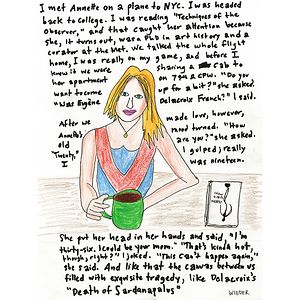 I met Annette on a plane to NYC. I was headed
back to college. I was reading "Techniques of the
Observer," and that caught her attention because
she, it turns out, was a PhD in art history and a
curator at the Met. We talked the whole flight
home, I was really on my game, and before I
knew it we were sharing a cab to
her apartment on 79th & CPW. "Do you
want to come up for a bit?" she asked.
"Was Eugène Delacroix French?" I said.
After we made love, however,
Annette's mood turned. "How
old are you?" she asked.
"Twenty," I gulped; really
I was nineteen.
She put her head in her hands and said, "I'm
thirty-six. I could be your mom." "That's kinda hot,
though, right?" I joked. "This can't happen again,"
she said. And like that the canvas between us
filled with exquisite tragedy, like Delacroix's
"Death of Sardanapalus"
WIEDER